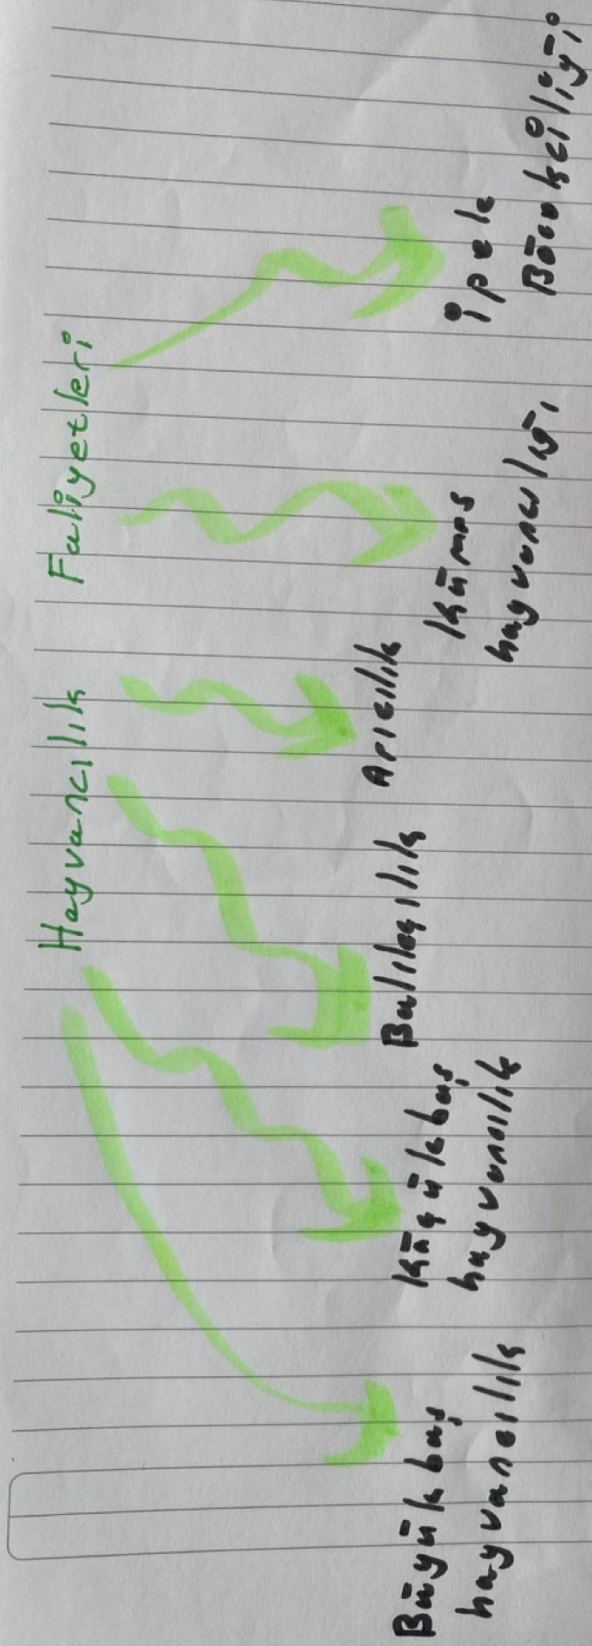 Hayvancılık Faliyetleri
Büyükbaş
hayvancılık
Küçükbaş
hayvancılık
Balıkçılık
Arıcılık
Kümes
hayvancılığı
İpek
Böcekciliği